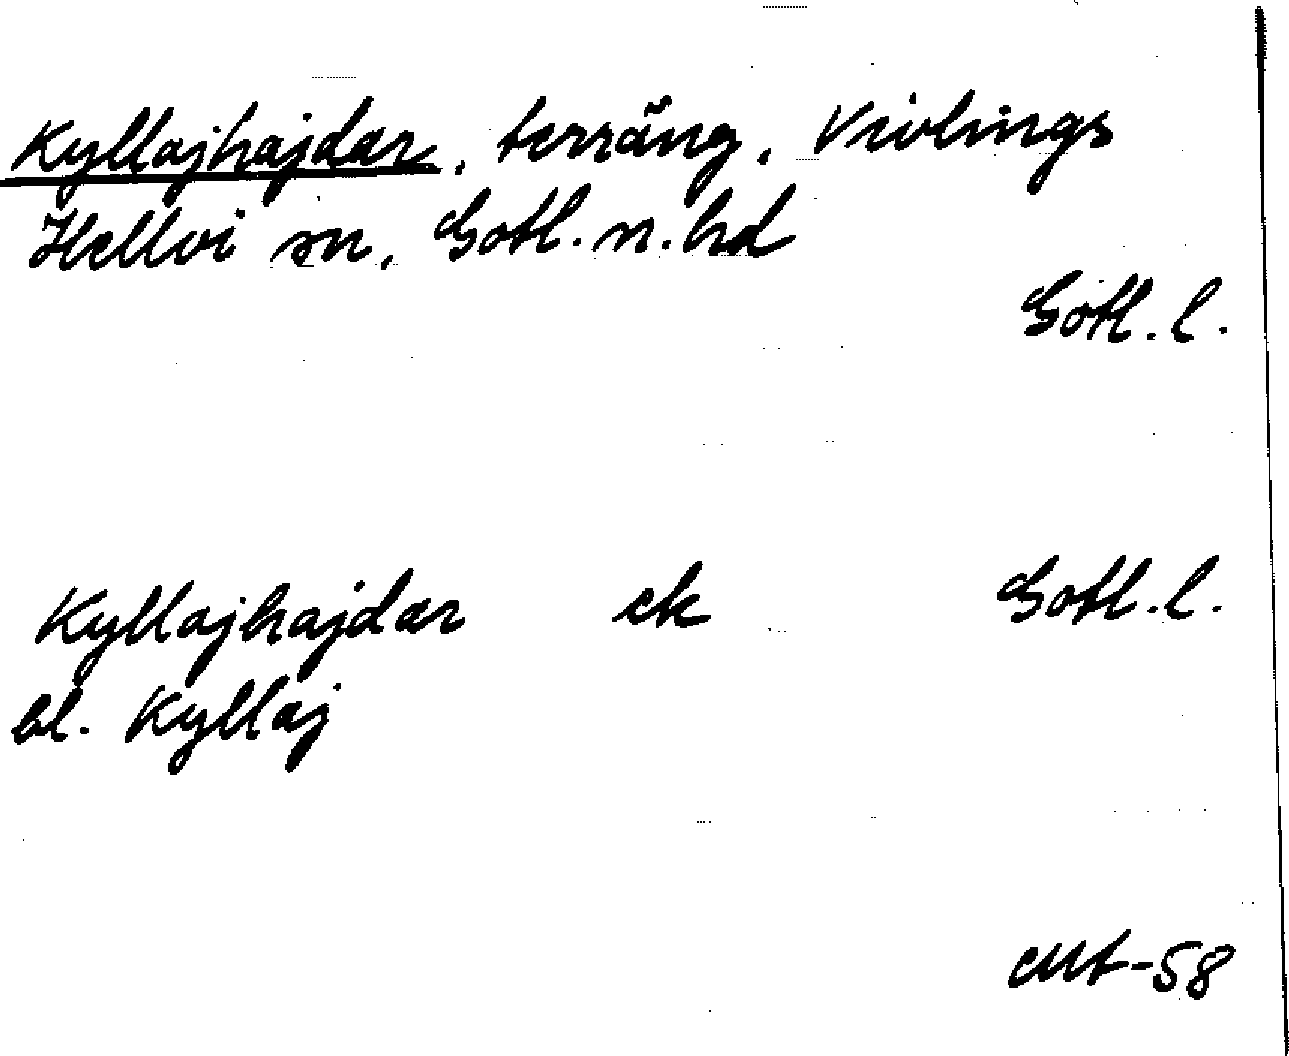 Kyllajhajdar, terräng, Vivlings
Hellvi sn, Gotl. n. hd
Gotl. l.
Kyllajhajdar ek Gotl. l.
bl. Kyllaj
Mt-58